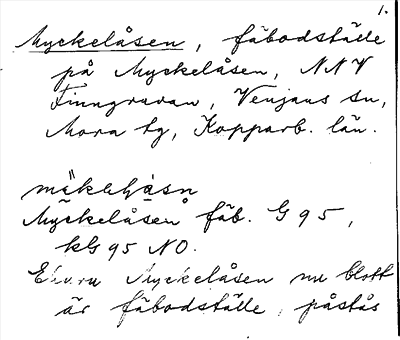 1.
Myckelåsen, fäbodställe
på Myckelåsen, NNV
Finngruvan, Venjans sn,
Mora tg, Kopparb. län.
Myckelåsen fäb. G 95,
kG 95 NO.
Myckelåsen nu blott
är fäbodställe, påstås